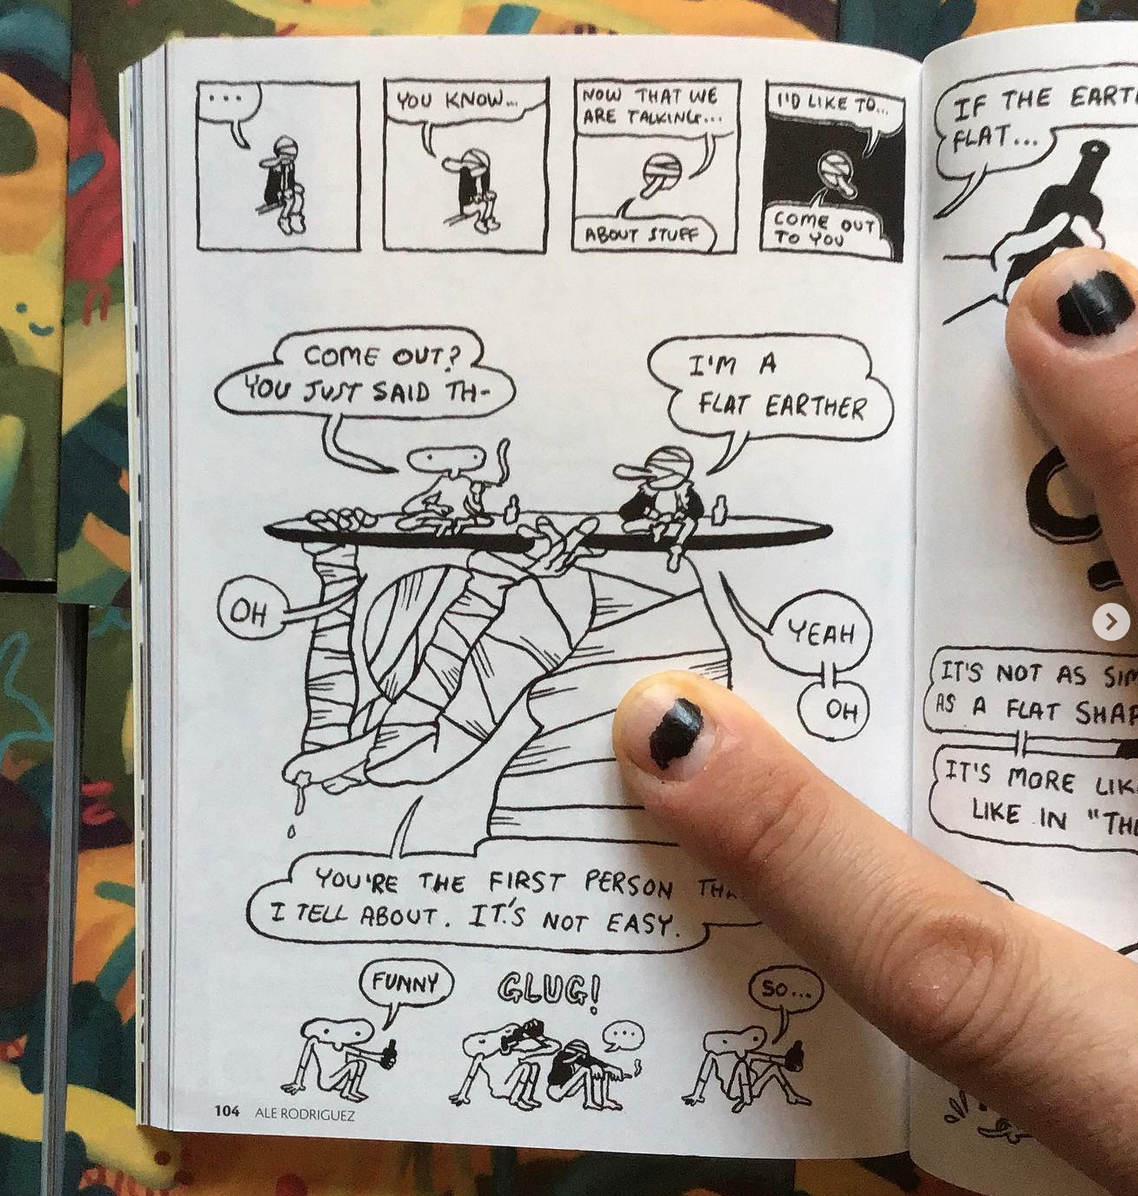 ...
YOU KNOW...
NOW THAT WE
ARE TALKING...
ABOUT STUFF
I'D LIKE TO...
COME OUT
TO YOU
COME OUT?
YOU JUST SAID TH-
I'M A
FLAT EARTHER
OH
YEAH
OH
YOU'RE THE FIRST PERSON
I TELL ABOUT. IT'S NOT EASY.
FUNNY
GLUG!
...
SO...
104 ALE RODRIGUEZ
IF THE
FLAT...
IT'S NOT AS
AS A FLAT
IT'S MORE
LIKE IN